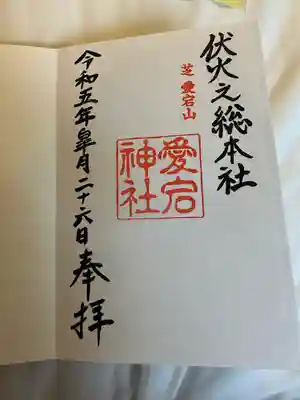 伏火之総本社
芝愛宕山
愛宕
神社
令和五年皐月二十六日奉拝